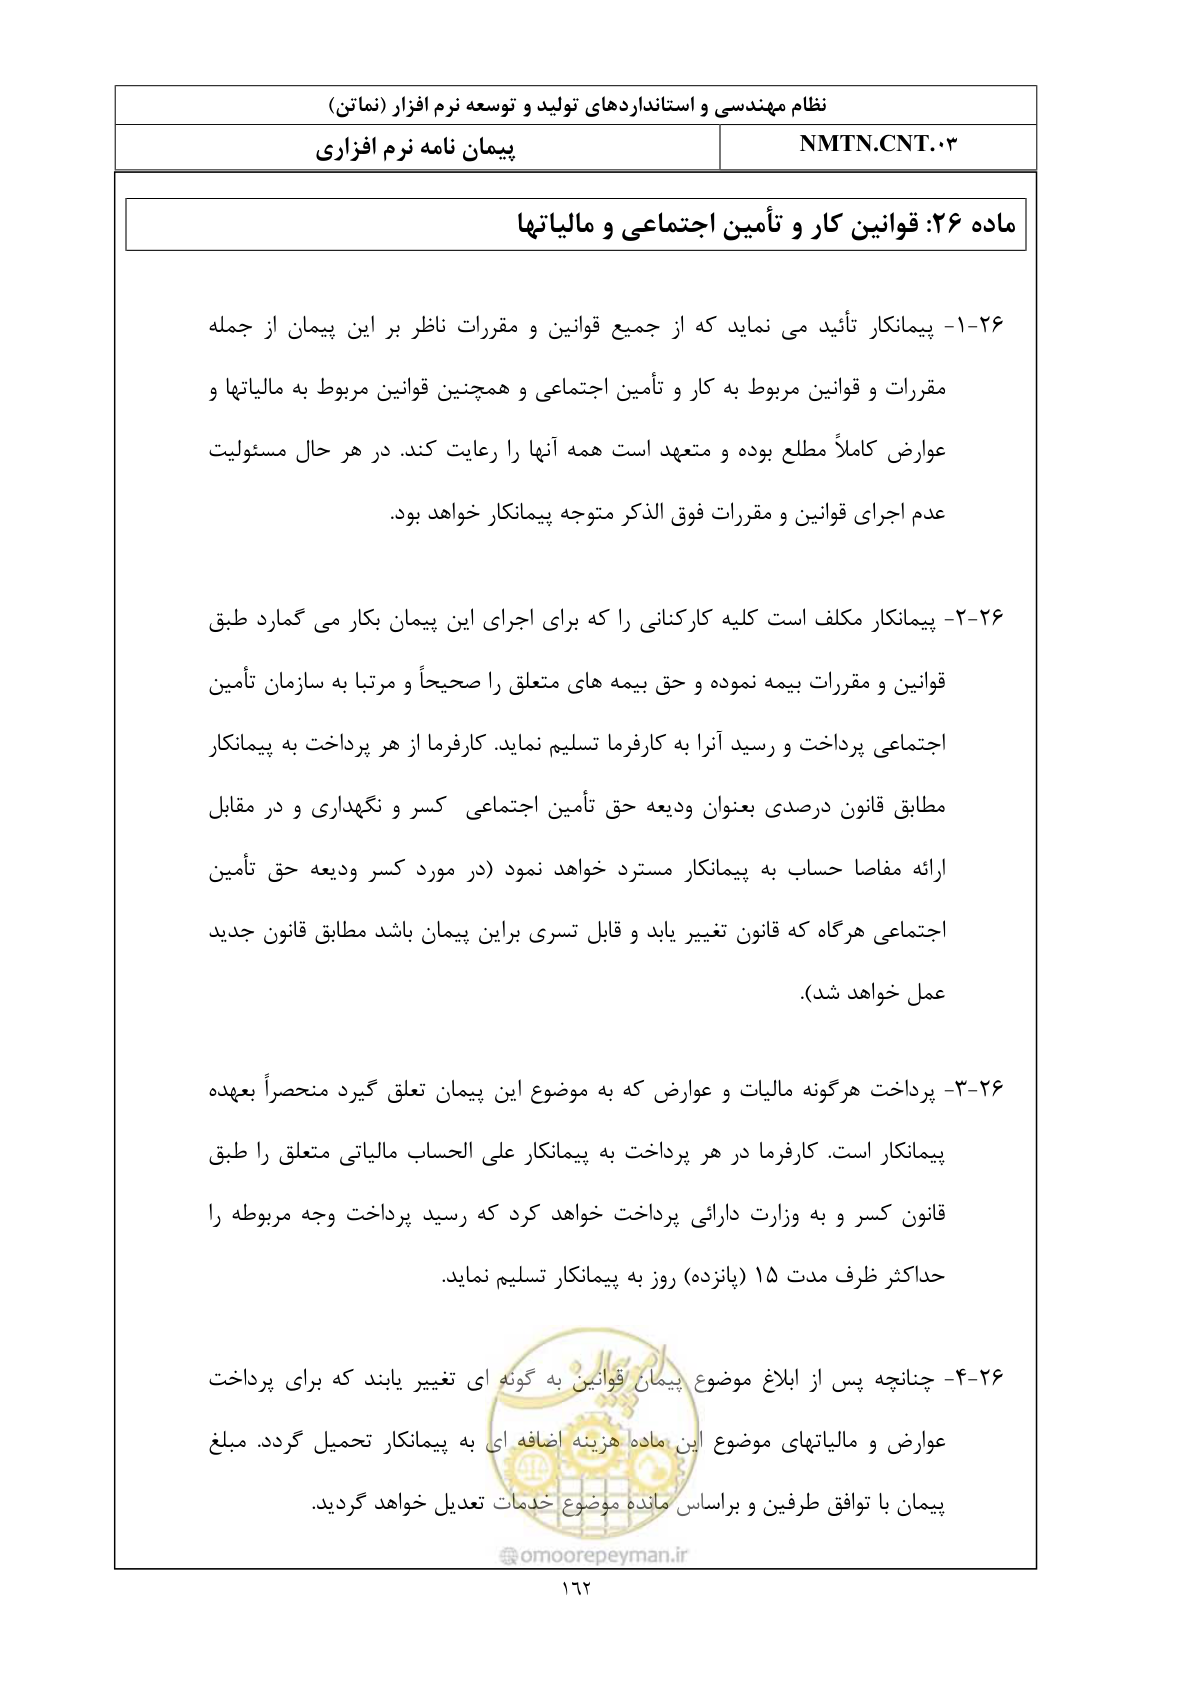 نظام مهندسی و استانداردهای تولید و توسعه نرم افزار (نماتن)
NMTN.CNT.۰۳
پیمان نامه نرم افزاری
ماده ۲۶: قوانین کار و تأمین اجتماعی و مالیاتها
۱-۲۶- پیمانکار تأئید می نماید که از جمیع قوانین و مقررات ناظر بر این پیمان از جمله
مقررات و قوانین مربوط به کار و تأمین اجتماعی و همچنین قوانین مربوط به مالیاتها و
عوارض کاملاً مطلع بوده و متعهد است همه آنها را رعایت کند. در هر حال مسئولیت
عدم اجرای قوانین و مقررات فوق الذکر متوجه پیمانکار خواهد بود.
۲-۲۶- پیمانکار مکلف است کلیه کارکنانی را که برای اجرای این پیمان بکار می گمارد طبق
قوانین و مقررات بیمه نموده و حق بیمه های متعلق را صحیحاً و مرتبا به سازمان تأمین
اجتماعی پرداخت و رسید آنرا به کارفرما تسلیم نماید. کارفرما از هر پرداخت به پیمانکار
مطابق قانون درصدی بعنوان ودیعه حق تأمین اجتماعی کسر و نگهداری و در مقابل
ارائه مفاصا حساب به پیمانکار مسترد خواهد نمود (در مورد کسر ودیعه حق تأمین
اجتماعی هرگاه که قانون تغییر یابد و قابل تسری براین پیمان باشد مطابق قانون جدید
عمل خواهد شد).
۳-۲۶- پرداخت هرگونه مالیات و عوارض که به موضوع این پیمان تعلق گیرد منحصراً بعهده
پیمانکار است. کارفرما در هر پرداخت به پیمانکار علی الحساب مالیاتی متعلق را طبق
قانون کسر و به وزارت دارائی پرداخت خواهد کرد که رسید پرداخت وجه مربوطه را
حداکثر ظرف مدت ۱۵ (پانزده) روز به پیمانکار تسلیم نماید.
۴-۲۶- چنانچه پس از ابلاغ موضوع پیمان قوانین به گونه ای تغییر یابند که برای پرداخت
عوارض و مالیاتهای موضوع این ماده هزینه اضافه ای به پیمانکار تحمیل گردد. مبلغ
پیمان با توافق طرفین و براساس مانده موضوع خدمات تعدیل خواهد گردید.
امور پیمان
@omoorepeyman.ir
۱۶۲